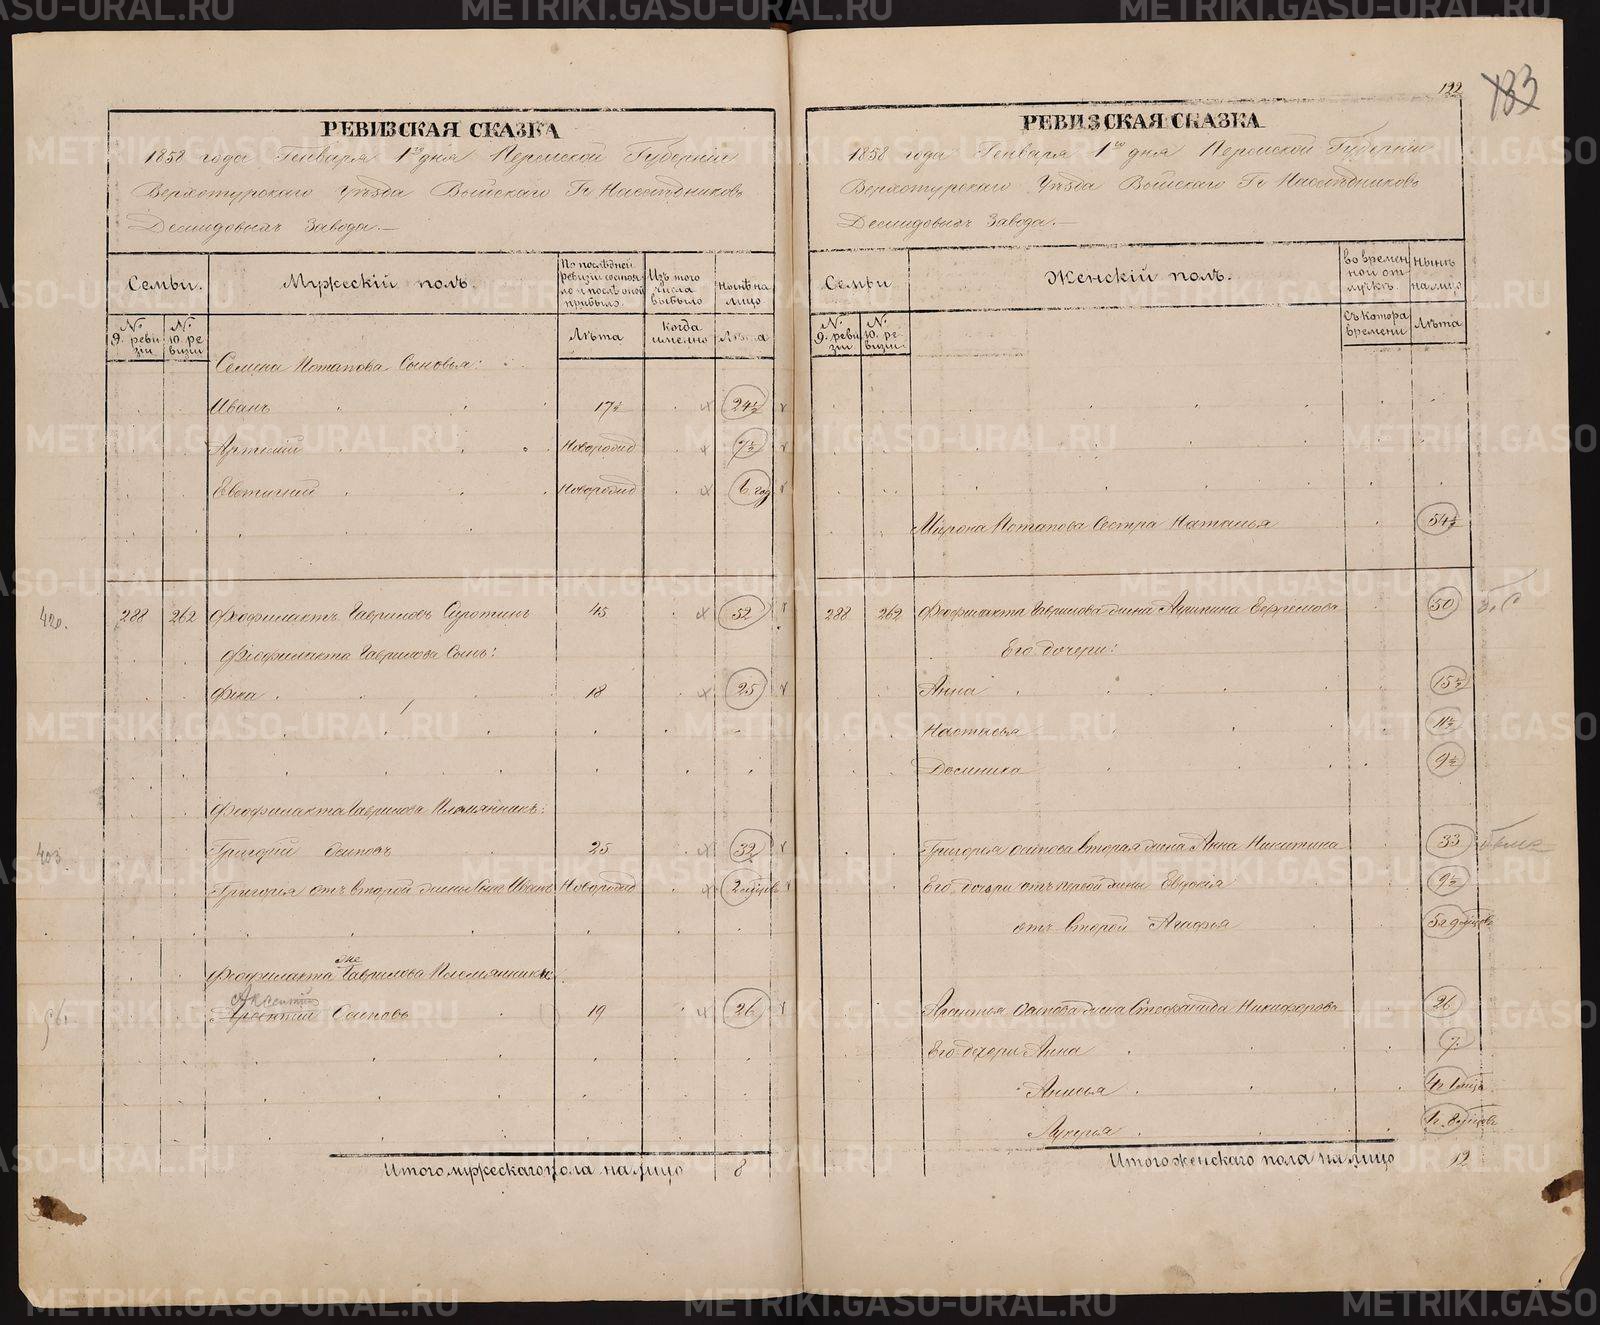 РЕВИЗСКАЯ СКАЗКА
1858 года Генваря 1го дня Пермской Губернии
Верхотурскаго Уѣзда Выйскаго Гг Наслѣдниковъ
Демидовыхъ Завода.
Семьи.
Мужескій полъ.
По послѣдней ревизіи состояло и послѣ оной прибыло.
Изъ того числа выбыло
Нынѣ на лицо
№ 9. ревизіи
№ 10. ревизіи
Лѣта
Когда именно
Лѣта
Семена Потапова Сыновья:
Иванъ 17½ 24½
Артемій Новорожд 7½
Евтихий Новорожд 6 год
420.
288 262 Феофилактъ Гавриловъ Сиротинъ 45 52
Феофилакта Гаврилова Сынъ:
Фока 18 25
Феофилакта Гаврилова Племянникъ:
403
Григорій Осиповъ 25 32
Григорія отъ второй жены Сынъ Иванъ Новорожд
Феофилакта же Гаврилова Племянникъ:
Аксентий
Осиповъ 19 26
Итого мужескаго пола на лицо 8
122
133
РЕВИЗСКАЯ СКАЗКА
1858 года Генваря 1го дня Пермской Губернии
Верхотурскаго Уѣзда Выйскаго Гг Наслѣдниковъ
Демидовыхъ Завода.
Семьи
Женскій полъ.
Во временной отлучкѣ.
Нынѣ на лицо
№ 9. ревизіи
№ 10. ревизіи
Съ котора времени
Лѣта
Мирона Потапова Сестра Наталья 54½
288 262 Феофилакта Гаврилова жена Акулина Ефремова 50
Его дочери:
Анна 15½
Настасья 11½
Домника 9½
Григорья Осипова вторая жена Анна Никитина 33
Его дочери отъ первой жены Евдокія 9½
отъ второй Агафья
Осипова жена Степанида Никифорова 26
Его дочери Анна 7.
Анисья
Лукерья
Итого женскаго пола на лицо 12
METRIKI.GASO-URAL.RU